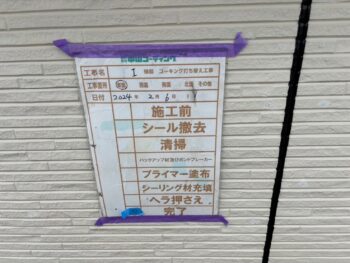 中山コーティング
工事名 I 様邸 コーキング打ち替え工事
工事箇所 東面 南面 西面 北面 その他
日付 2024 年 2月 6日
施工前
シール撤去
清掃
バックアップ材及びボンドブレーカー
プライマー塗布
シーリング材充填
ヘラ押さえ
完了